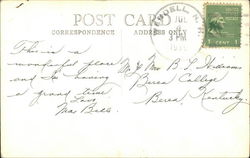 POST CARD
CORRESPONDENCE
ADDRESS ONLY
JUL
3 PM
This is a
wonderful place
and I'm having
a grand time
Love,
Mr. & Mrs. B. L.
Berea College
Berea,
Kentucky.
1 CENT 1